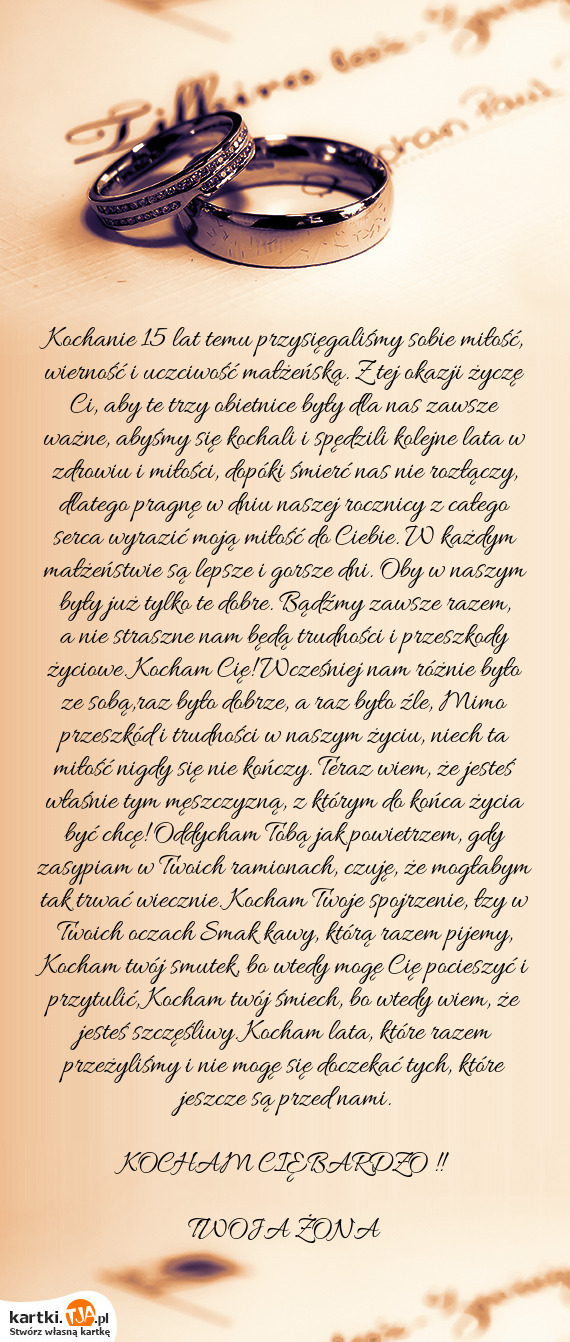 Kochanie 15 lat temu przysięgaliśmy sobie miłość,
wierność i uczciwość małżeńską. Z tej okazji życzę
Ci, aby te trzy obietnice były dla nas zawsze
ważne, abyśmy się kochali i spędzili kolejne lata w
zdrowiu i miłości, dopóki śmierć nas nie rozłączy,
dlatego pragnę w dniu naszej rocznicy z całego
serca wyrazić moją miłość do Ciebie. W każdym
małżeństwie są lepsze i gorsze dni. Oby w naszym
były już tylko te dobre. Bądźmy zawsze razem,
a nie straszne nam będą trudności i przeszkody
życiowe.Kocham Cię!Wcześniej nam różnie było
ze sobą,raz było dobrze, a raz było źle, Mimo
przeszkód i trudności w naszym życiu, niech ta
miłość nigdy się nie kończy. Teraz wiem, że jesteś
właśnie tym męszczyzną, z którym do końca życia
być chcę!Oddycham Tobą jak powietrzem, gdy
zasypiam w Twoich ramionach, czuję, że mogłabym
tak trwać wiecznie.Kocham Twoje spojrzenie, łzy w
Twoich oczach Smak kawy, którą razem pijemy,
Kocham twój smutek, bo wtedy mogę Cię pocieszyć i
przytulić,Kocham twój śmiech, bo wtedy wiem, że
jesteś szczęśliwy.Kocham lata, które razem
przeżyliśmy i nie mogę się doczekać tych, które
jeszcze są przed nami.
KOCHAM CIĘ BARDZO !!
TWOJA ŻONA
kartki.TJA.pl
Stwórz własną kartkę